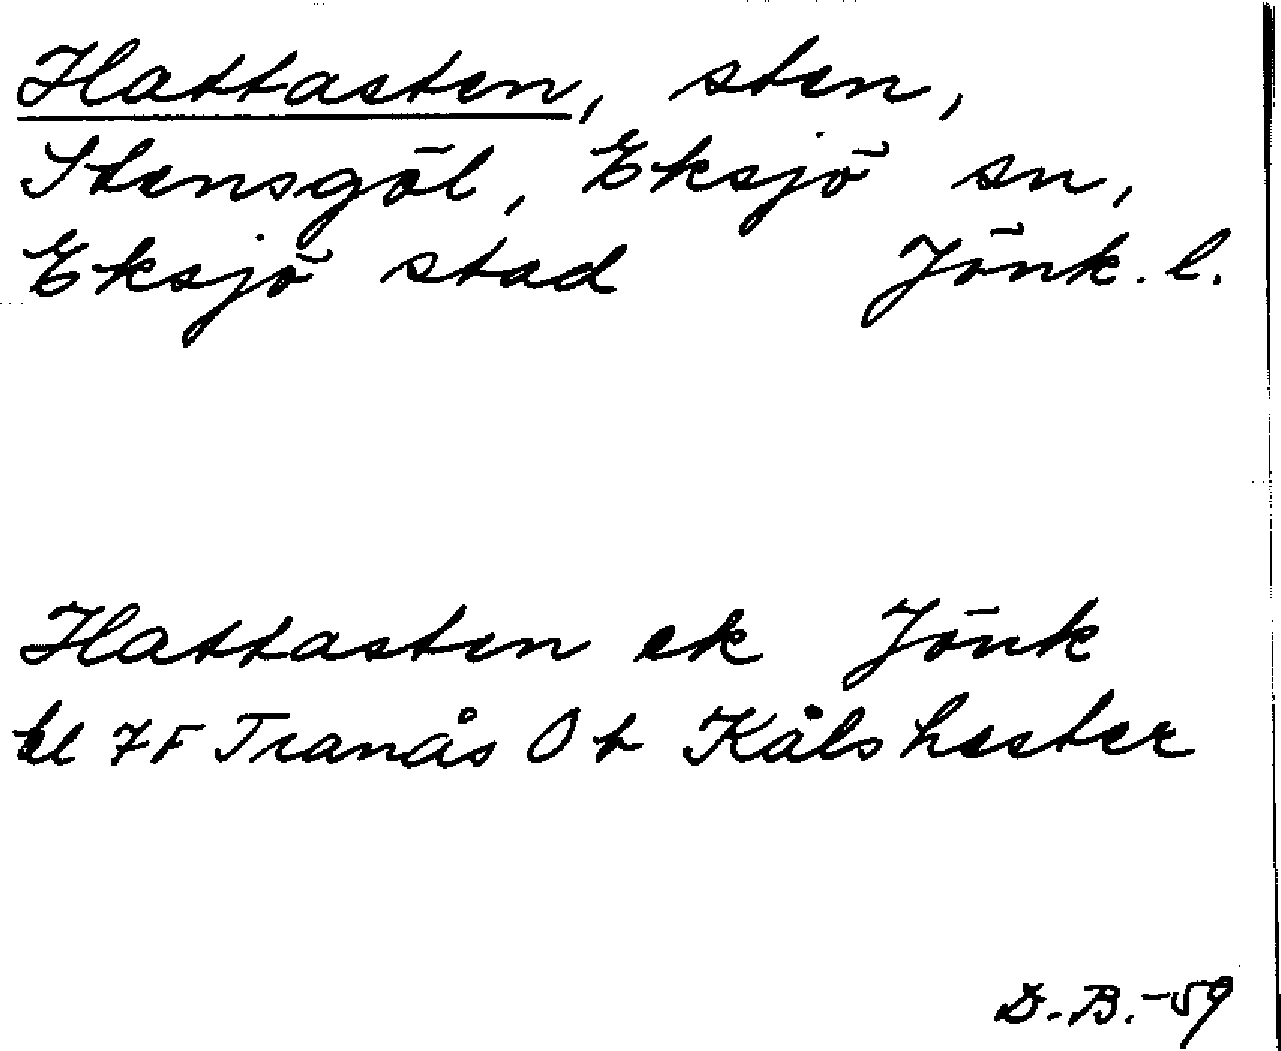 Hattasten, sten,
Stensgöl, Eksjö sn,
Eksjö stad Jönk. l.
Hattasten ek Jönk
bl 7F Tranås Ö t Kålshester
D.B.-59